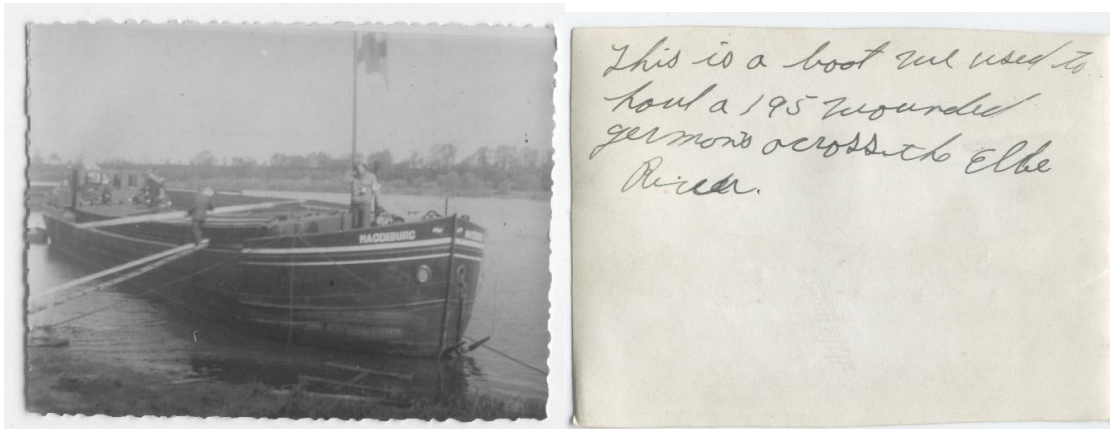 MAGDEBURG
This is a boat we used to
haul a 195 wounded
germans across the Elbe
River.